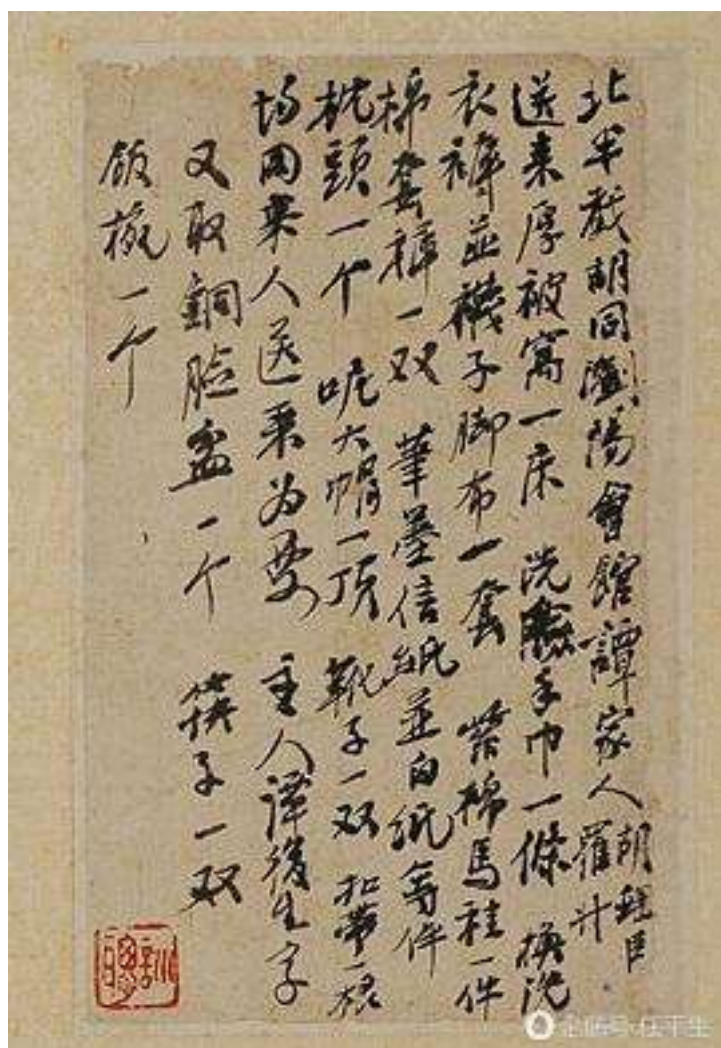 北半截胡同瀏陽會館譚家人胡理臣羅升
送来厚被窩一床 洗臉手巾一條 換洗
衣褲並襪子脚布一套 紫棉馬褂一件
棉套褲一双 筆墨信紙並白紙等件
枕頭一个 呢大帽一頂 靴子一双 扣帶一根
均同来人送来为要 主人譚復生字
又取銅脸盆一个 筷子一双
飯椀一个